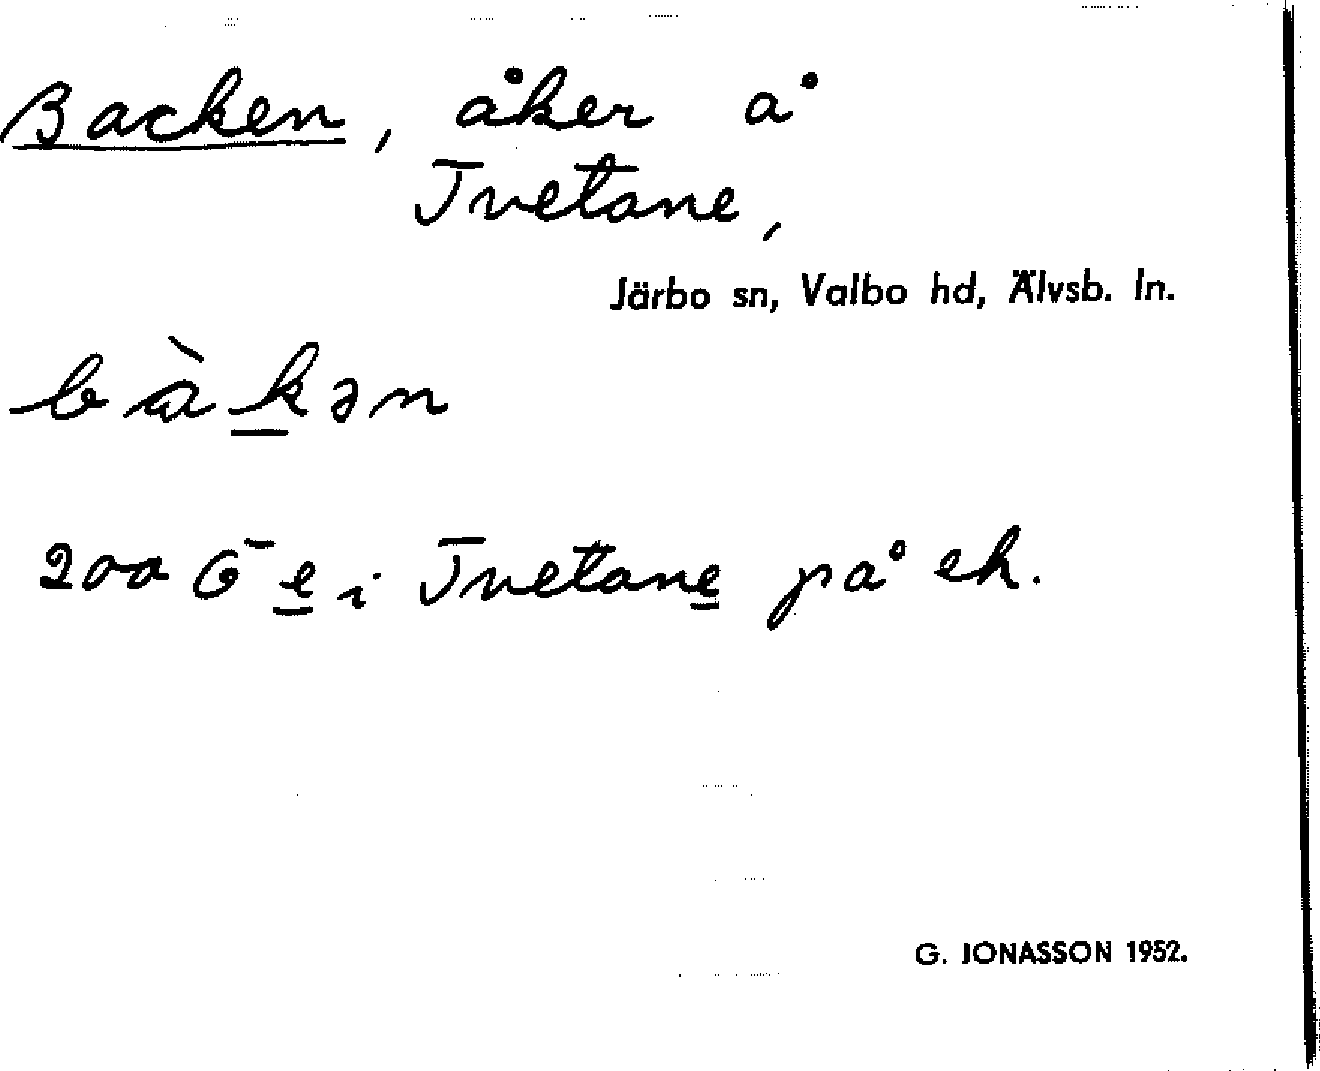 Backen, åker å
Tvetane,
Järbo sn, Valbo hd, Älvsb. ln.
bàk̲ən
200 Ḡ e̲ i Tvetane̲ på ek.
G. JONASSON 1952.